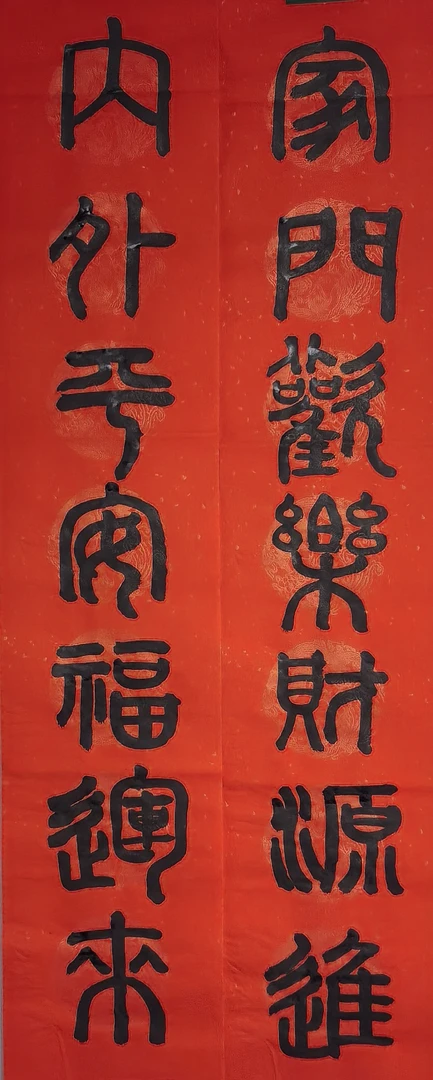 家門歡樂財源進
內外平安福運來